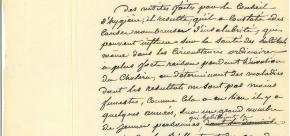 des visites faites par le Conseil
d'hygiène ; il résulte qu'il a constaté des
causes nombreuses d'insalubrité, que
peuvent influer sur la santé des habitants
même dans les circonstances ordinaires
a plus forte raison pendant l'invasion
du Choléra, en déterminant des maladies
dont les résultats ne sont pas moins
funestes, comme cela a eu lieu il y a
quelques années, sur un grand nombre
de jeunes personnes